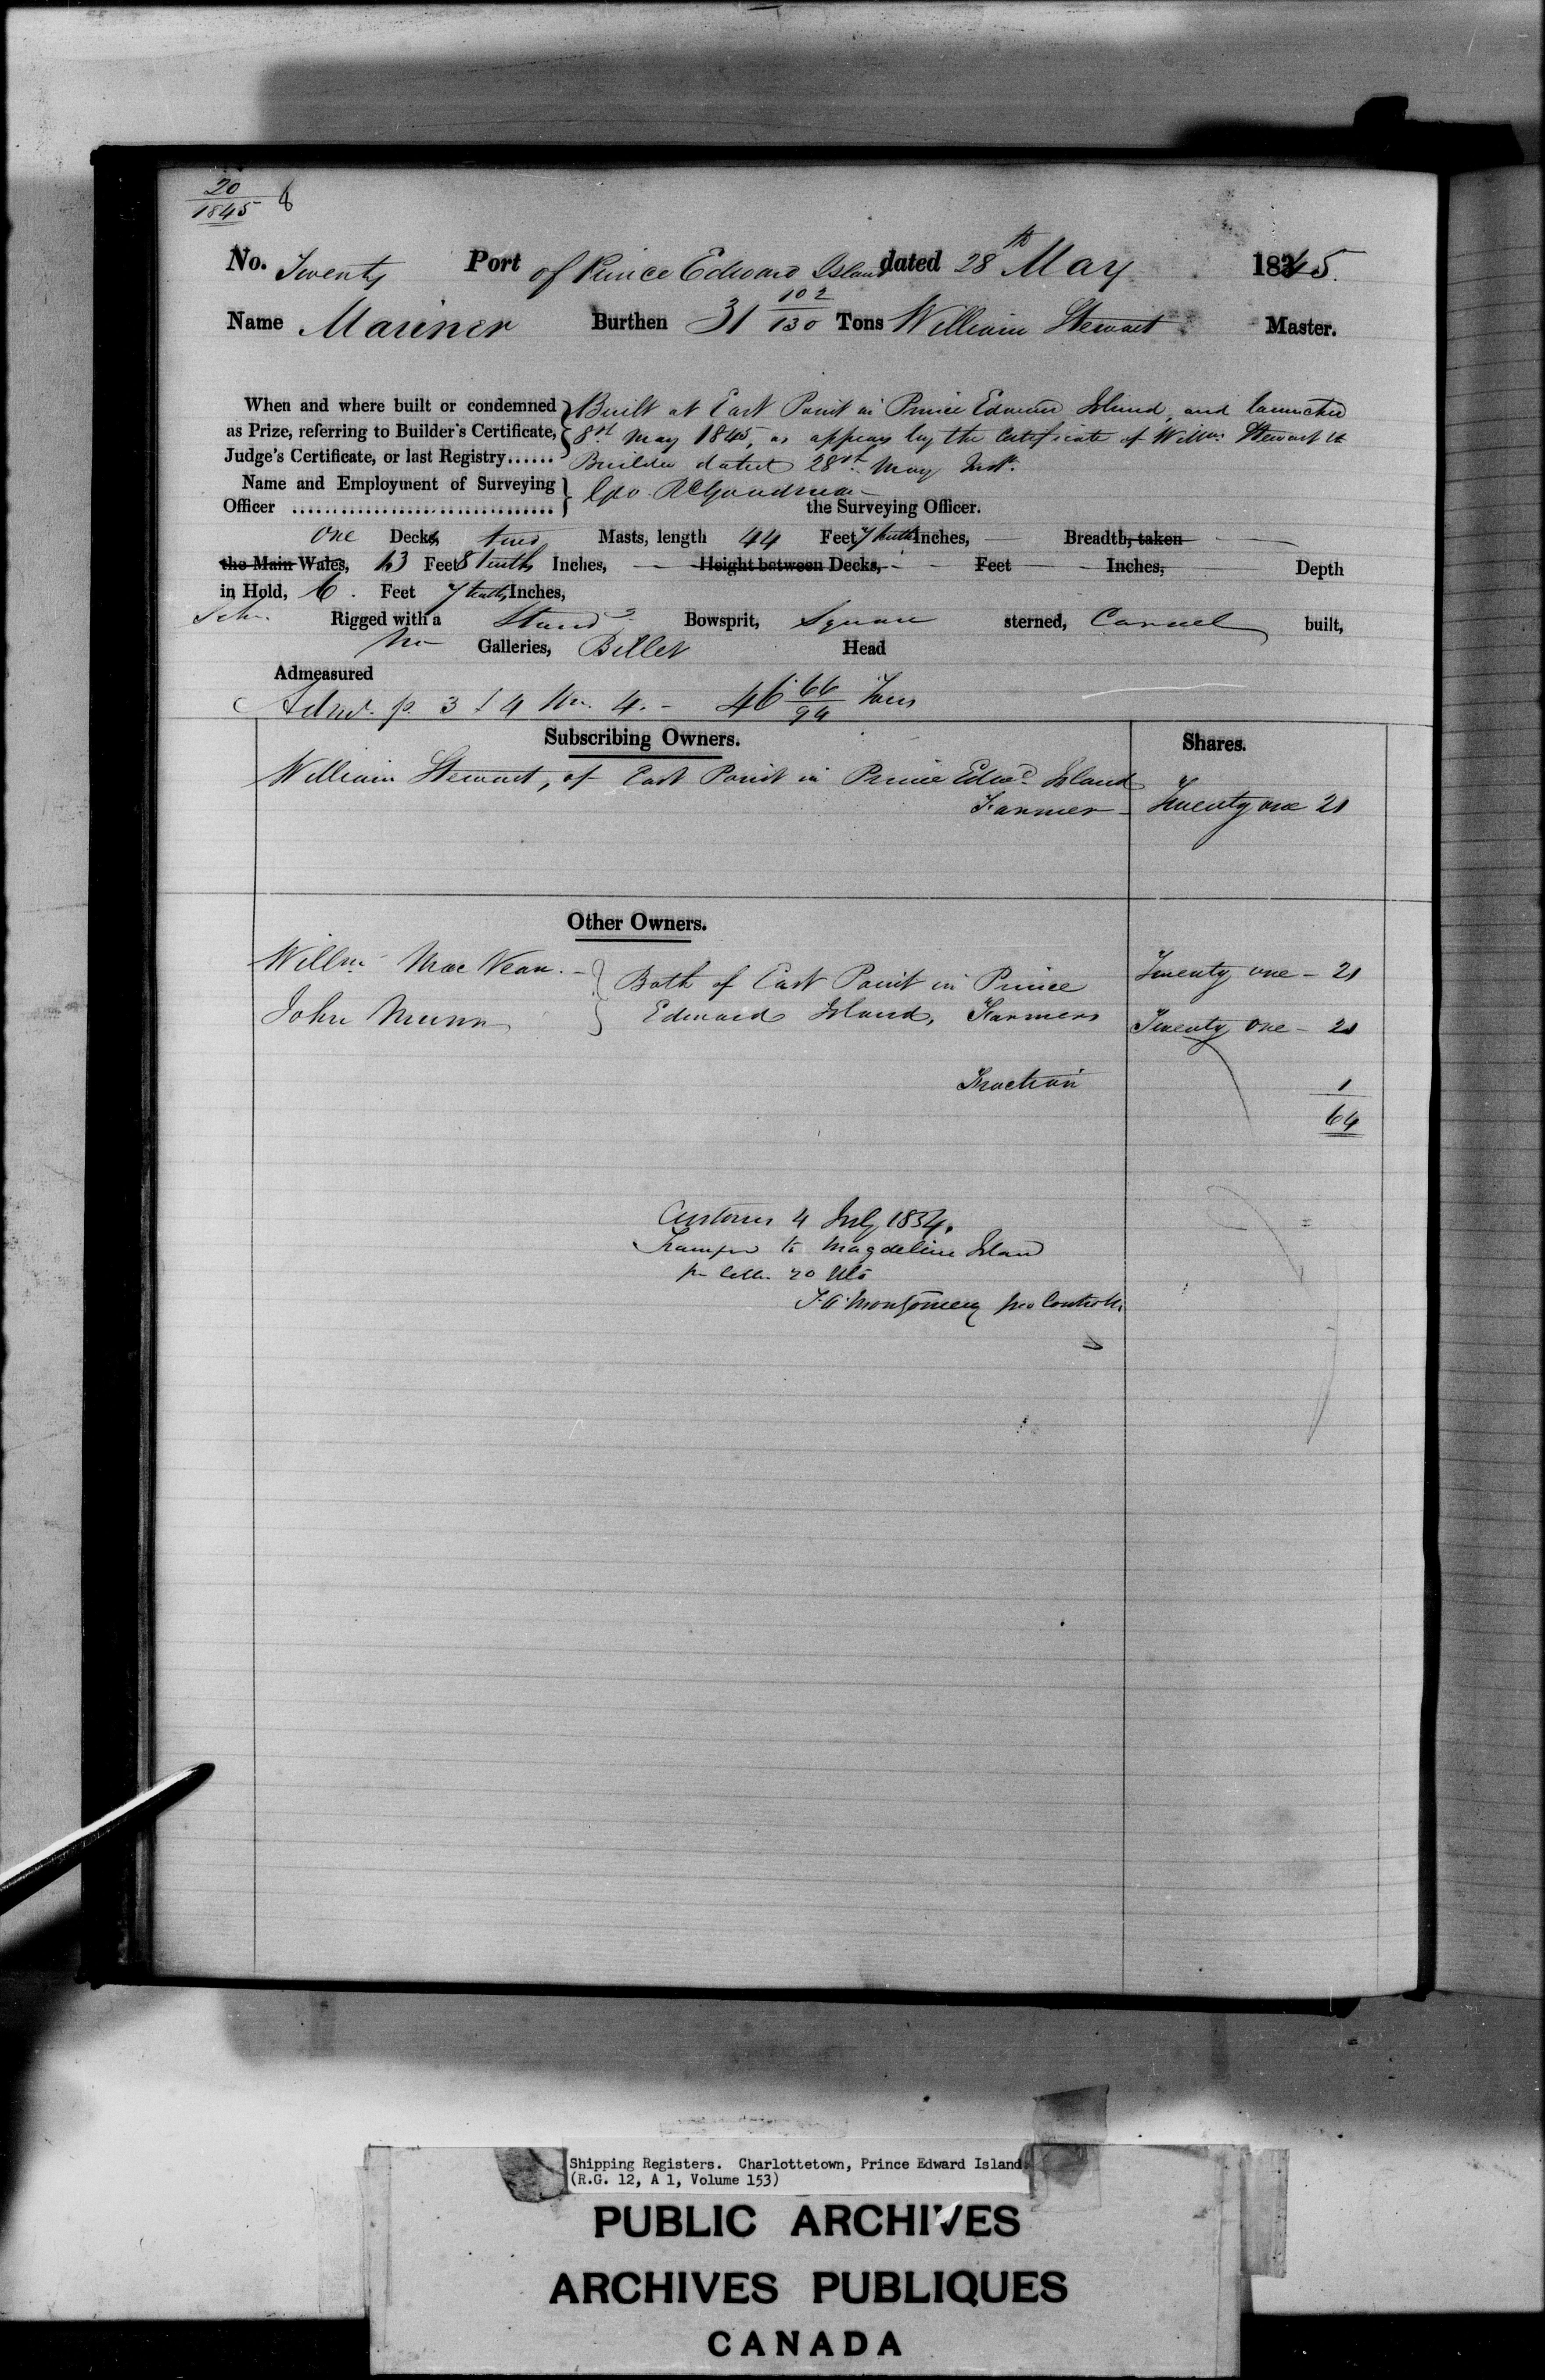 20
1845
No. Twenty Port of Prince Edward Island dated 28th May 1845.
Name Mariner Burthen 31 102/130 Tons William Stewart Master.
When and where built or condemned Built at East Point in Prince Edward Island and launched
as Prize, referring to Builder's Certificate, 8th May 1845, as appears by the Certificate of Willm Stewart the
Judge's Certificate, or last Registry...... Builder dated 28th May Inst.
Name and Employment of Surveying
Officer ................................ Geo. R Goodman the Surveying Officer.
One Decks, two Masts, length 44 Feet 7 tenths Inches, Breadth, taken
the Main Wales, 13 Feet 8 tenths Inches, Height between Decks, Feet Inches, Depth
in Hold, 6. Feet 7 tenths Inches,
Schr. Rigged with a Stand'g Bowsprit, Square sterned, Carvel built,
No Galleries, Billet Head
Admeasured
46 66/94 Tons
Subscribing Owners. Shares.
William Stewart, of East Point in Prince Edwd Island
Farmer - Twenty one 21
Other Owners.
Willm Mac Vean. - Both of East Point in Prince Twenty one - 21
John Munn Edward Island, Farmers Twenty one - 21
Fraction 1
64
Customs 4 July 1854.
Transfd to Magdeline Island
pr letter 20 Ulto
Montgomery pro Controller
Shipping Registers. Charlottetown, Prince Edward Island.
(R.G. 12, A 1, Volume 153)
PUBLIC ARCHIVES
ARCHIVES PUBLIQUES
CANADA